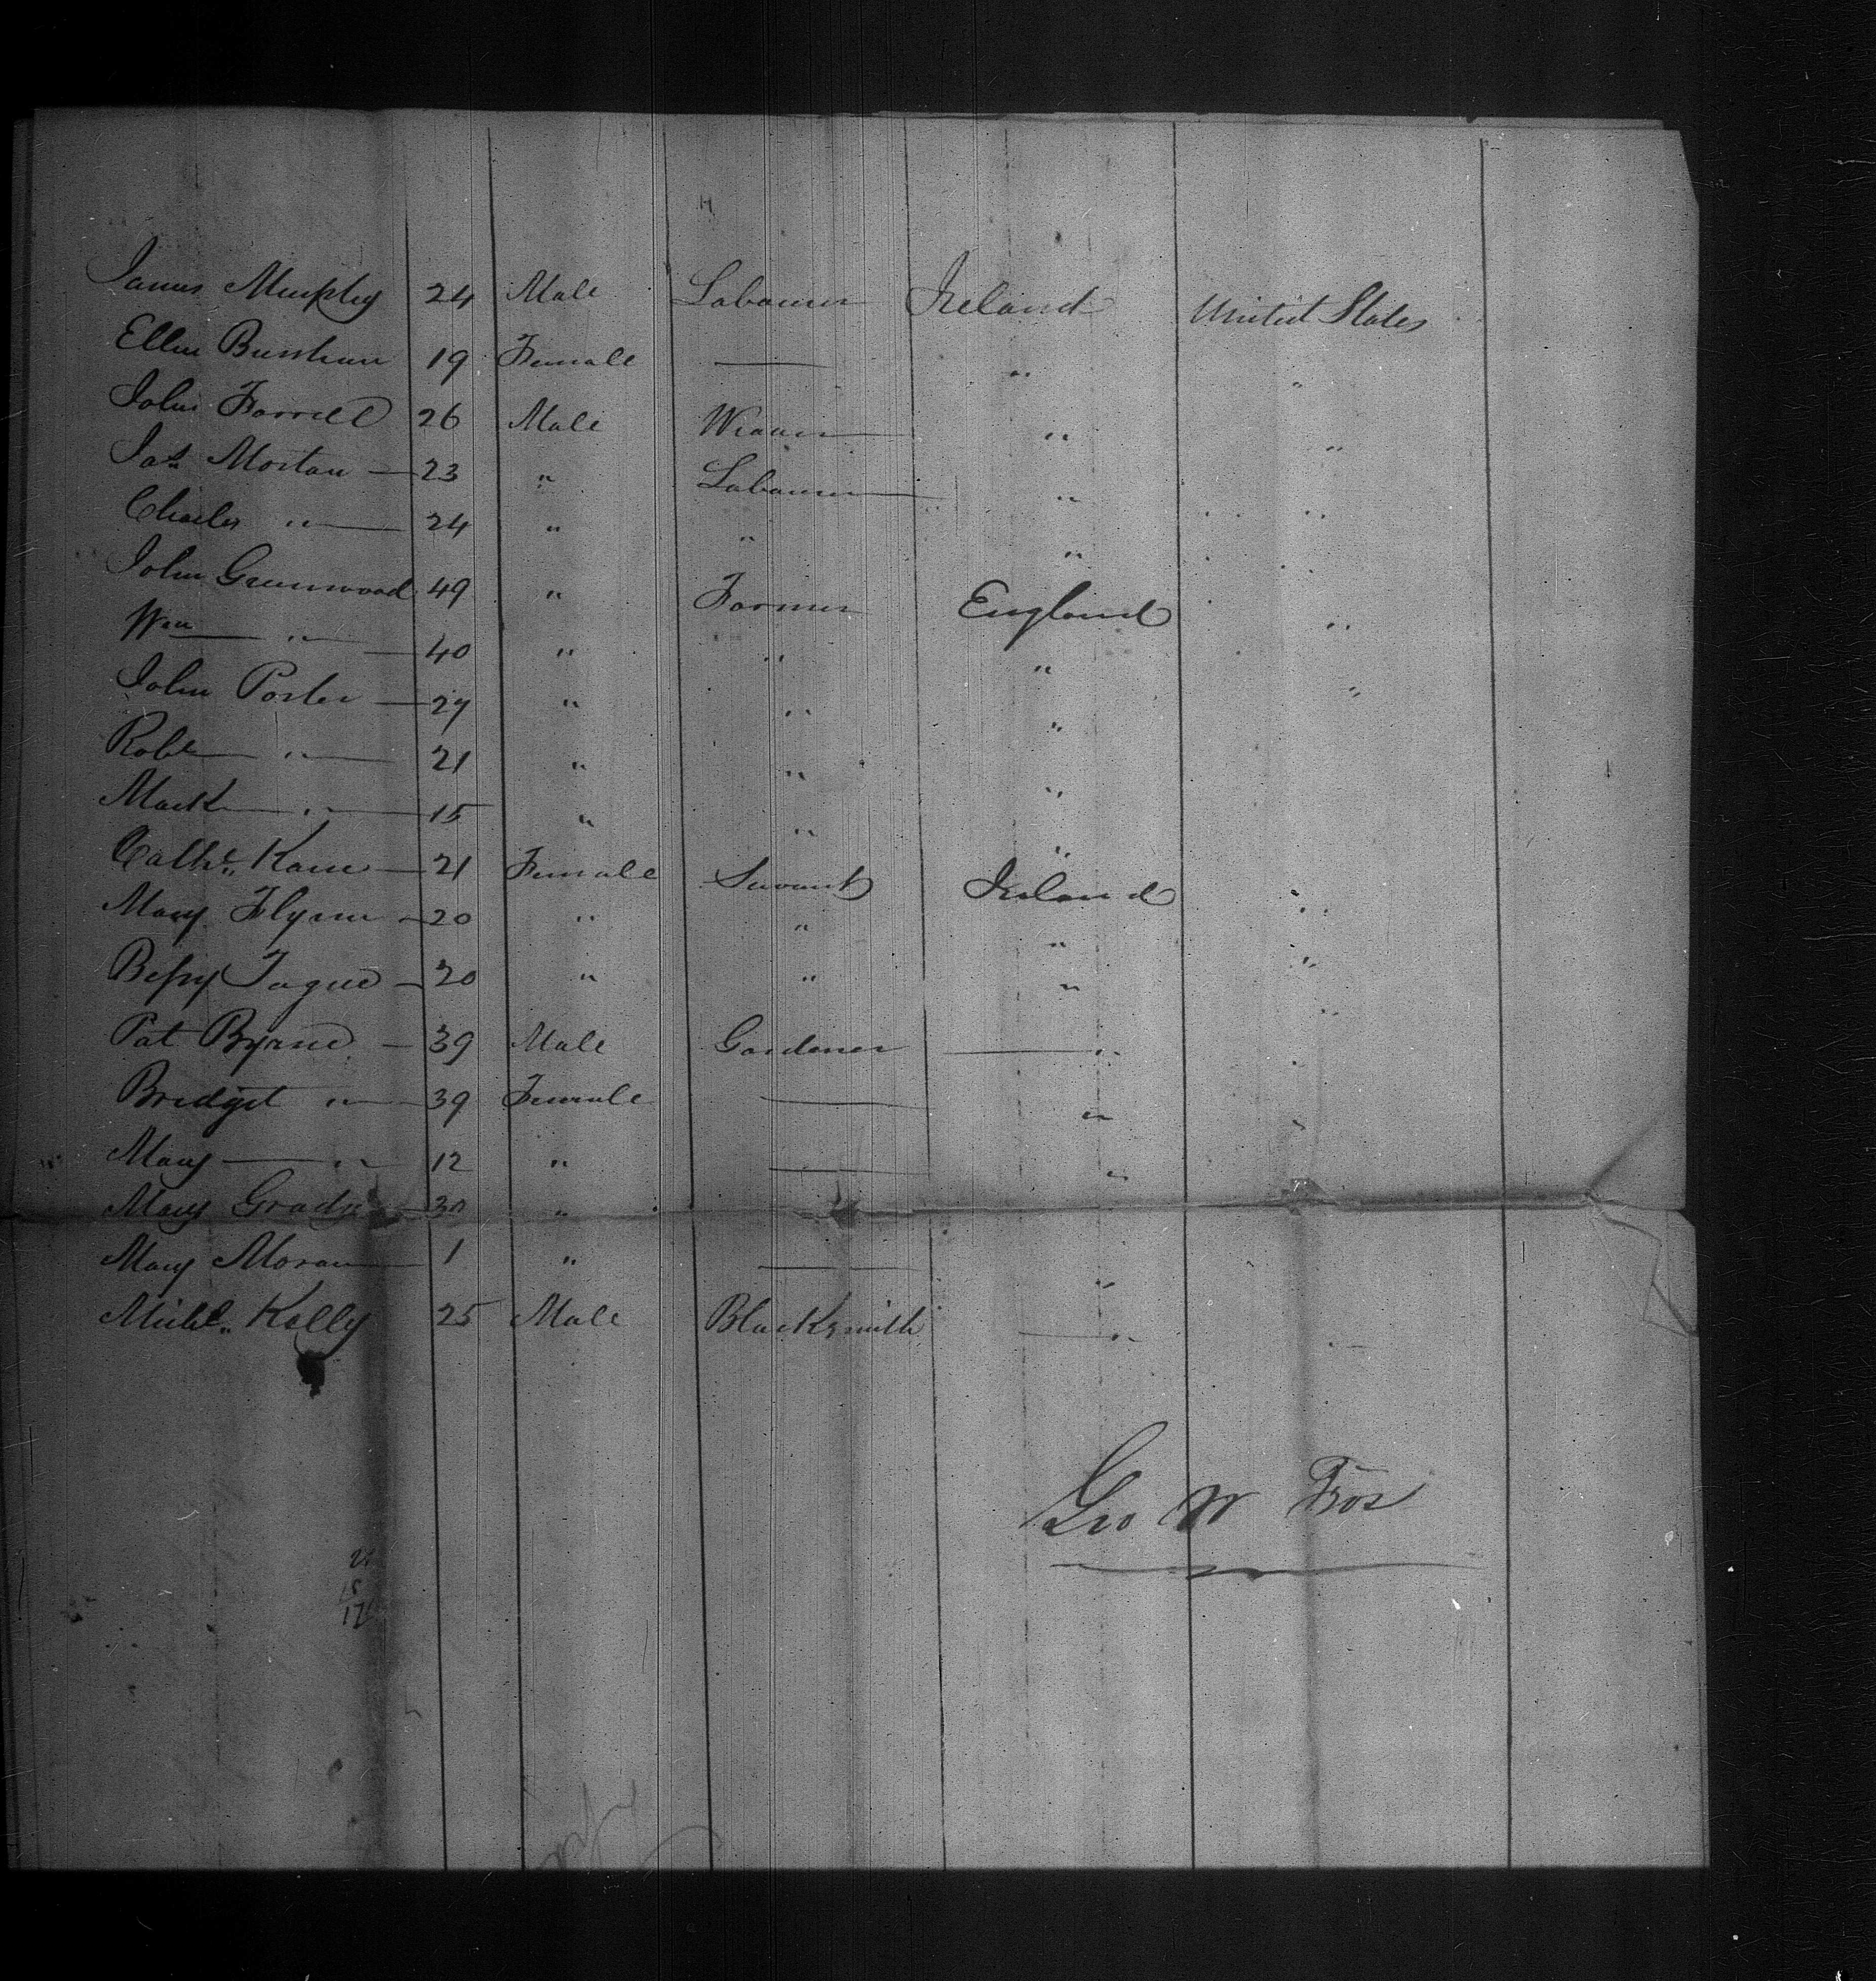 James Murphy 24 Male Labourer Ireland United States
Ellen 19 Female — " "
John Farrell 26 Male Weaver — " "
Jas Mortan — 23 " Labourer — " "
Charles " — 24 " " " "
John Greenwood 49 " Farmer England "
Wm — " — 40 " " " "
John Porter — 27 " " "
Robt — " — 21 " " "
Mark — " — 15 " " "
Cathe Kane — 21 Female Servant Ireland "
Mary Flynn — 20 " " " "
Bessy Tague — 20 " " " "
Pat Byrne — 39 Male Gardener — " "
Bridget " — 39 Female — " "
Mary — " — 12 " — "
Mary Grady — 30 "
Mary Moran — 1 " — "
Michl Kelly 25 Male Blacksmith — " "
Geo W